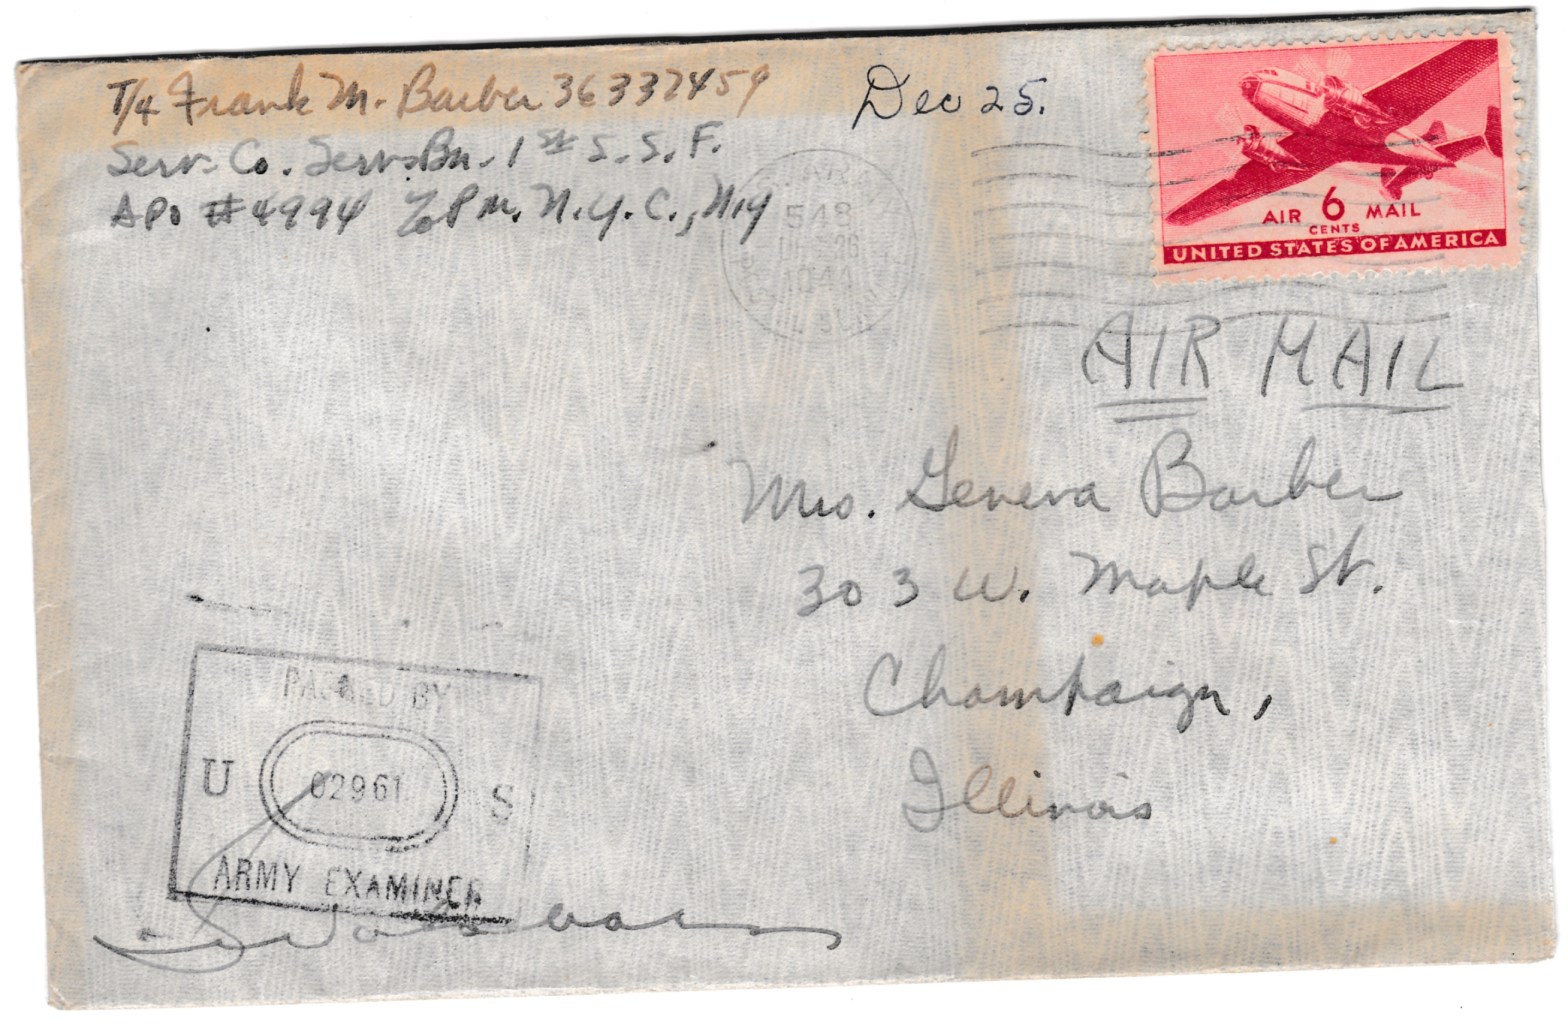 T/4 Frank M. Barber 36337459
Serv. Co. Serv. Bn. 1st S. S. F.
APO #4994 % PM. N.Y.C., N.Y
Dec 25.
548
26
AIR 6 MAIL
CENTS
UNITED STATES OF AMERICA
AIR MAIL
Mrs. Geneva Barber
303 W. Maple St.
Champaign,
Illinois
PASSED BY
U 02961 S
ARMY EXAMINER